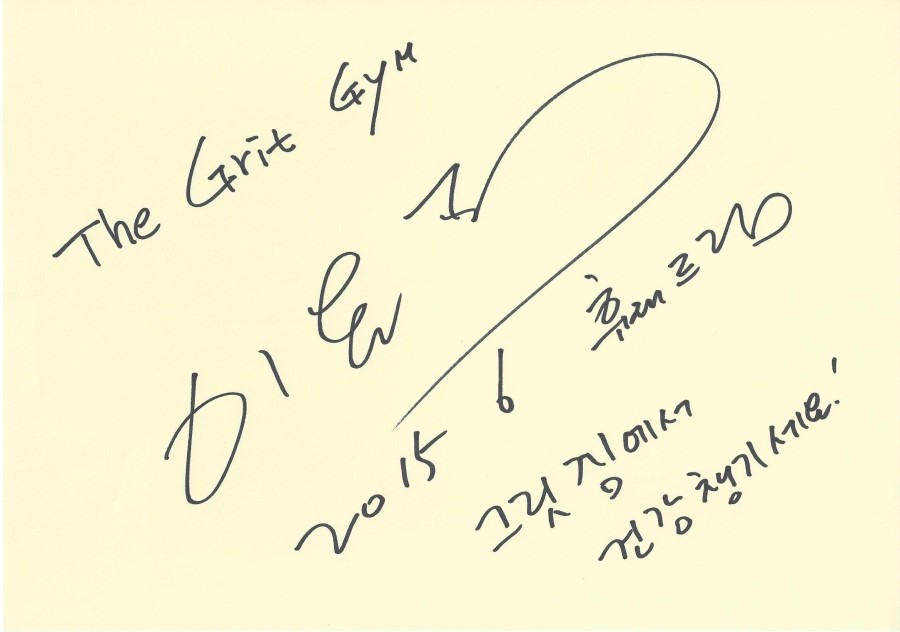 The Grit Gym
2015 6
그릿 짐에서
건강 챙기세요!